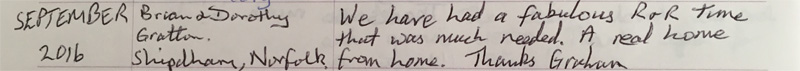 SEPTEMBER Brian & Dorothy We have had a fabulous R&R time
Gratton. that was much needed. A real home
2016 Shipdham, Norfolk. from home. Thanks Graham